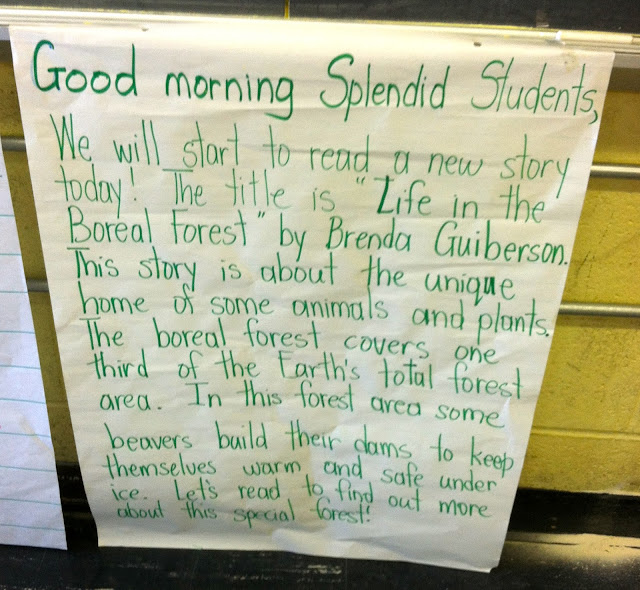 Good morning Splendid Students,
We will start to read a new story
today! The title is "Life in the
Boreal Forest" by Brenda Guiberson.
This story is about the unique
home of some animals and plants.
The boreal forest covers one
third of the Earth's total forest
area. In this forest area some
beavers build their dams to keep
themselves warm and safe under
ice. Let's read to find out more
about this special forest!